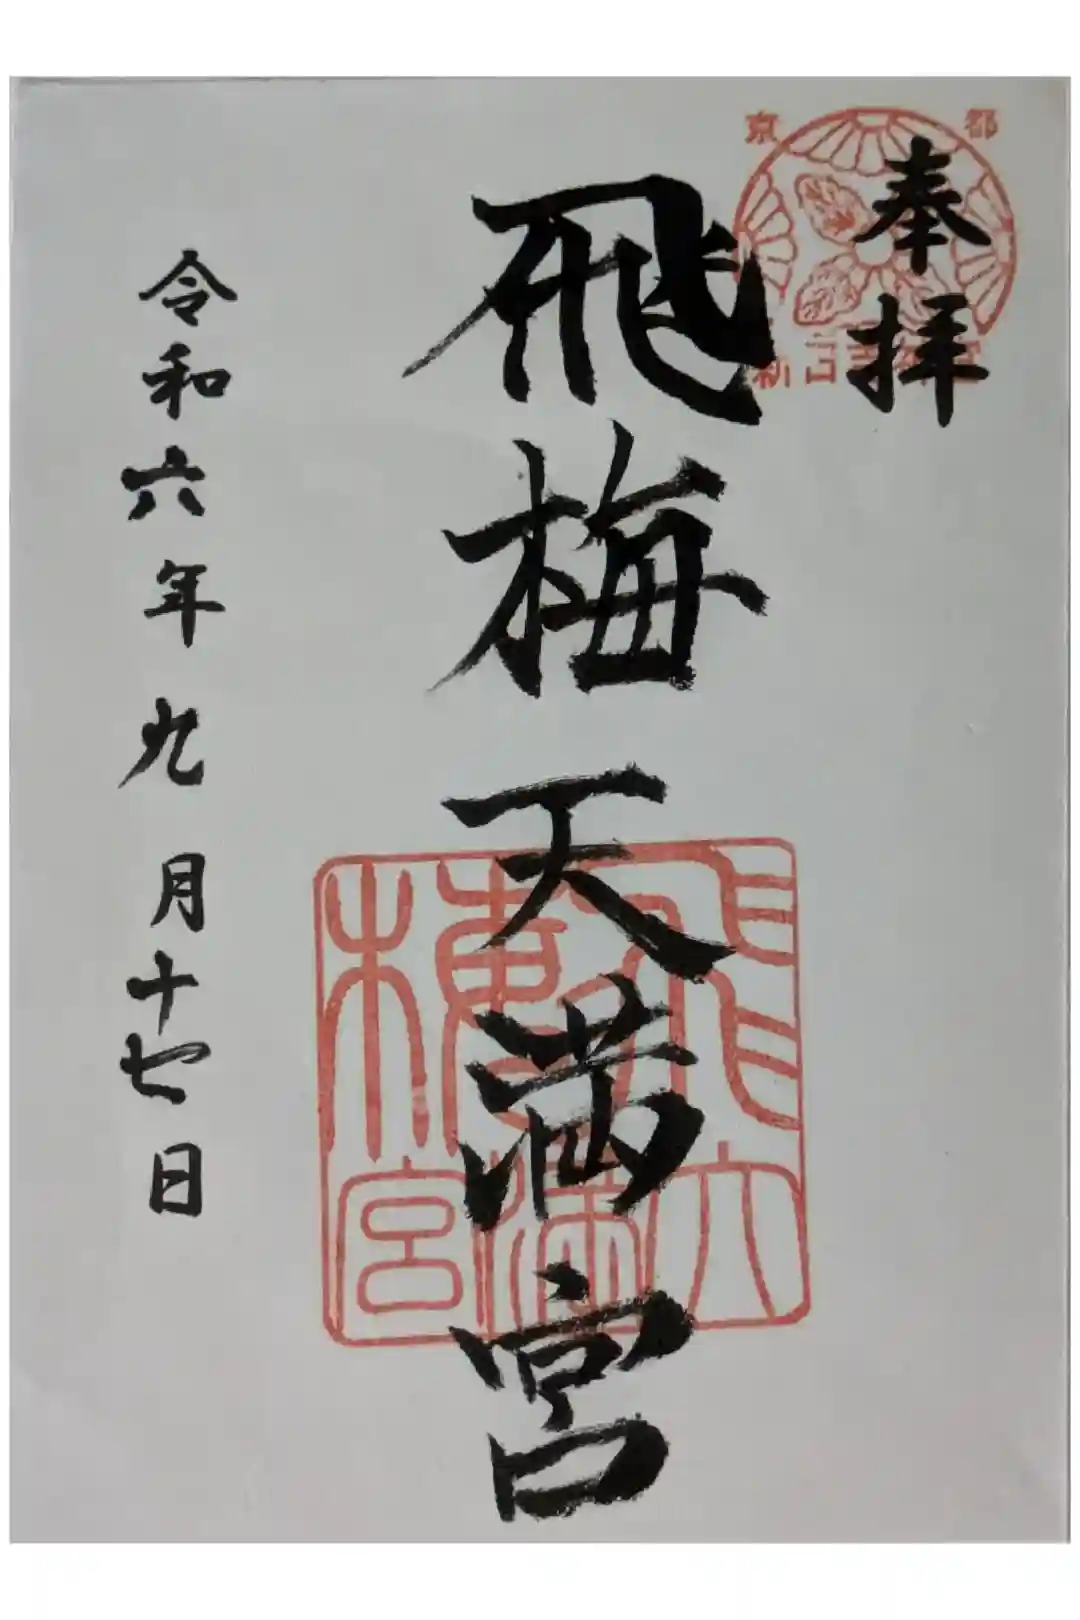 奉拝
京都
新日吉神宮
飛梅天満宮
令和六年九月十七日